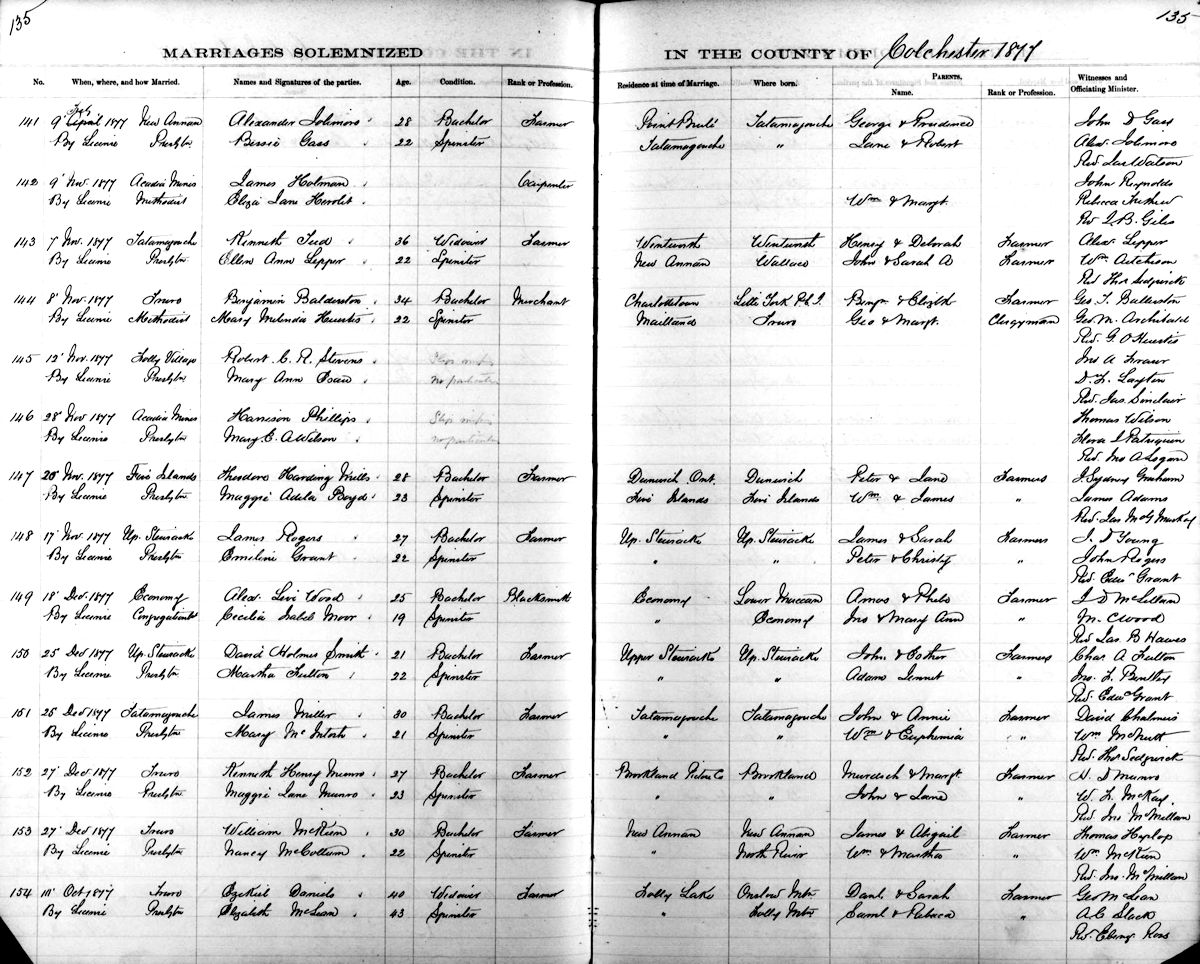 135
135
MARRIAGES SOLEMNIZED IN THE COUNTY OF Colchester 1877
PARENTS.
No. When, where, and how Married. Names and Signatures of the parties. Age. Condition. Rank or Profession. Residence at time of Marriage. Where born. Name. Rank or Profession. Witnesses and Officiating Minister.
141 9' July 1877 New Annan Alexander 28 Bachelor Farmer Point Brulé Tatamagouche George & Prudence John D Gass
By Licence Presbytn Bessie Gass 22 Spinster Tatamagouche " Jane & Robert Alexr
Rev Jas Watson
142 9' Nov. 1877 Acadia Mines James Holman Carpenter John Reynolds
By Licence Methodist Eliza Jane Wm & Margt Rebecca
Rev J. B. Giles
143 7 Nov. 1877 Tatamagouche Kenneth 36 Widower Farmer Wentworth Wentworth Henry & Deborah Farmer Alexr Lepper
By Licence Presbytn Ellen Ann Lepper 22 Spinster New Annan Wallace John & Sarah A Farmer Wm Aitcheson
Rev Thos Sedgwick
144 8' Nov. 1877 Truro Benjamin Balderston 34 Bachelor Merchant Charlottetown Little York P.E.I. Benjn & Elizth Farmer Geo. T. Balderston
By Licence Methodist Mary Melinda Huestis 22 Spinster Maitland Truro Geo & Margt. Clergyman Geo M. Archibald
Rev. G. O Huestis
145 12' Nov. 1877 Folly Village Robert C. R. Stevens Jno A
By Licence Presbytn Mary Ann no particulars D. F. Layton
Rev. Jas Sinclair
146 28' Nov 1877 Acadia Mines Harrison Phillips Slip Thomas Wilson
By Licence Presbytn Mary E. A Wilson no particulars Flora I Patriquin
Rev. Jno A Logan
147 20' Nov. 1877 Five Islands Theodore Harding Mills 28 Bachelor Farmer Dunwich Ont. Dunwich Peter & Jane Farmers J. Sydney Graham
By Licence Presbytn Maggie Adela Boyd 23 Spinster Five Islands Five Islands Wm. & James " James Adams
Rev. Jas McG McKay
148 17' Nov 1877 Up. Stewiacke James Rogers 27 Bachelor Farmer Up. Stewiacke Up. Stewiacke James & Sarah Farmers J. D Young
By Licence Presbytn Emeline Grant 22 Spinster " " Peter & Christy " John Rogers
Rev Edwd Grant
149 18' Dec. 1877 Economy Alex. Levi Wood 25 Bachelor Blacksmith Economy Lower Maccan Amos & Phebe Farmer J. D McLellan
By Licence Congregationlt Cecilia Isabel Moor 19 Spinster " Economy Jno & Mary Ann " M. C Wood
Rev Jas B Hawes
150 25' Dec 1877 Up. Stewiacke David Holmes Smith 21 Bachelor Farmer Upper Stewiacke Up. Stewiacke John & Esther Farmers Chas. A Fulton
By Licence Presbytn Martha Fulton 22 Spinster " " Adam Jennet " Jno. F. Bentley
Rev. Edwd Grant
151 26' Dec 1877 Tatamagouche James Miller 30 Bachelor Farmer Tatamagouche Tatamagouche John & Annie Farmer David Chalmers
By Licence Presbytn Mary McIntosh 21 Spinster " " Wm & Euphemia " Wm McNutt
Rev. Thos Sedgwick
152 27' Dec 1877 Truro Kenneth Henry Munro 37 Bachelor Farmer Brookland Pictou Co Brookland Murdoch & Margt. Farmer H. D Munro
By Licence Presbytn Maggie Jane Munro 23 Spinster " " John & Jane " W. F. McKay
Rev. Jno McMillan
153 27' Dec 1877 Truro William McKeen 30 Bachelor Farmer New Annan New Annan James & Abigail Farmer Thomas Hyslop
By Licence Presbytn Nancy McCollum 22 Spinster " North River Wm & Martha " Wm McKeen
Rev. Jno. McMillan
154 10' Oct 1877 Truro Ezekiel Daniels 40 Widower Farmer Folly Lake Onslow Mtn Danl & Sarah Farmer Geo McLean
By Licence Presbytn Elizabeth McLean 43 Spinster Folly Mtn Saml & Rebecca " A. C Slack
Rev. Ebenzr Ross